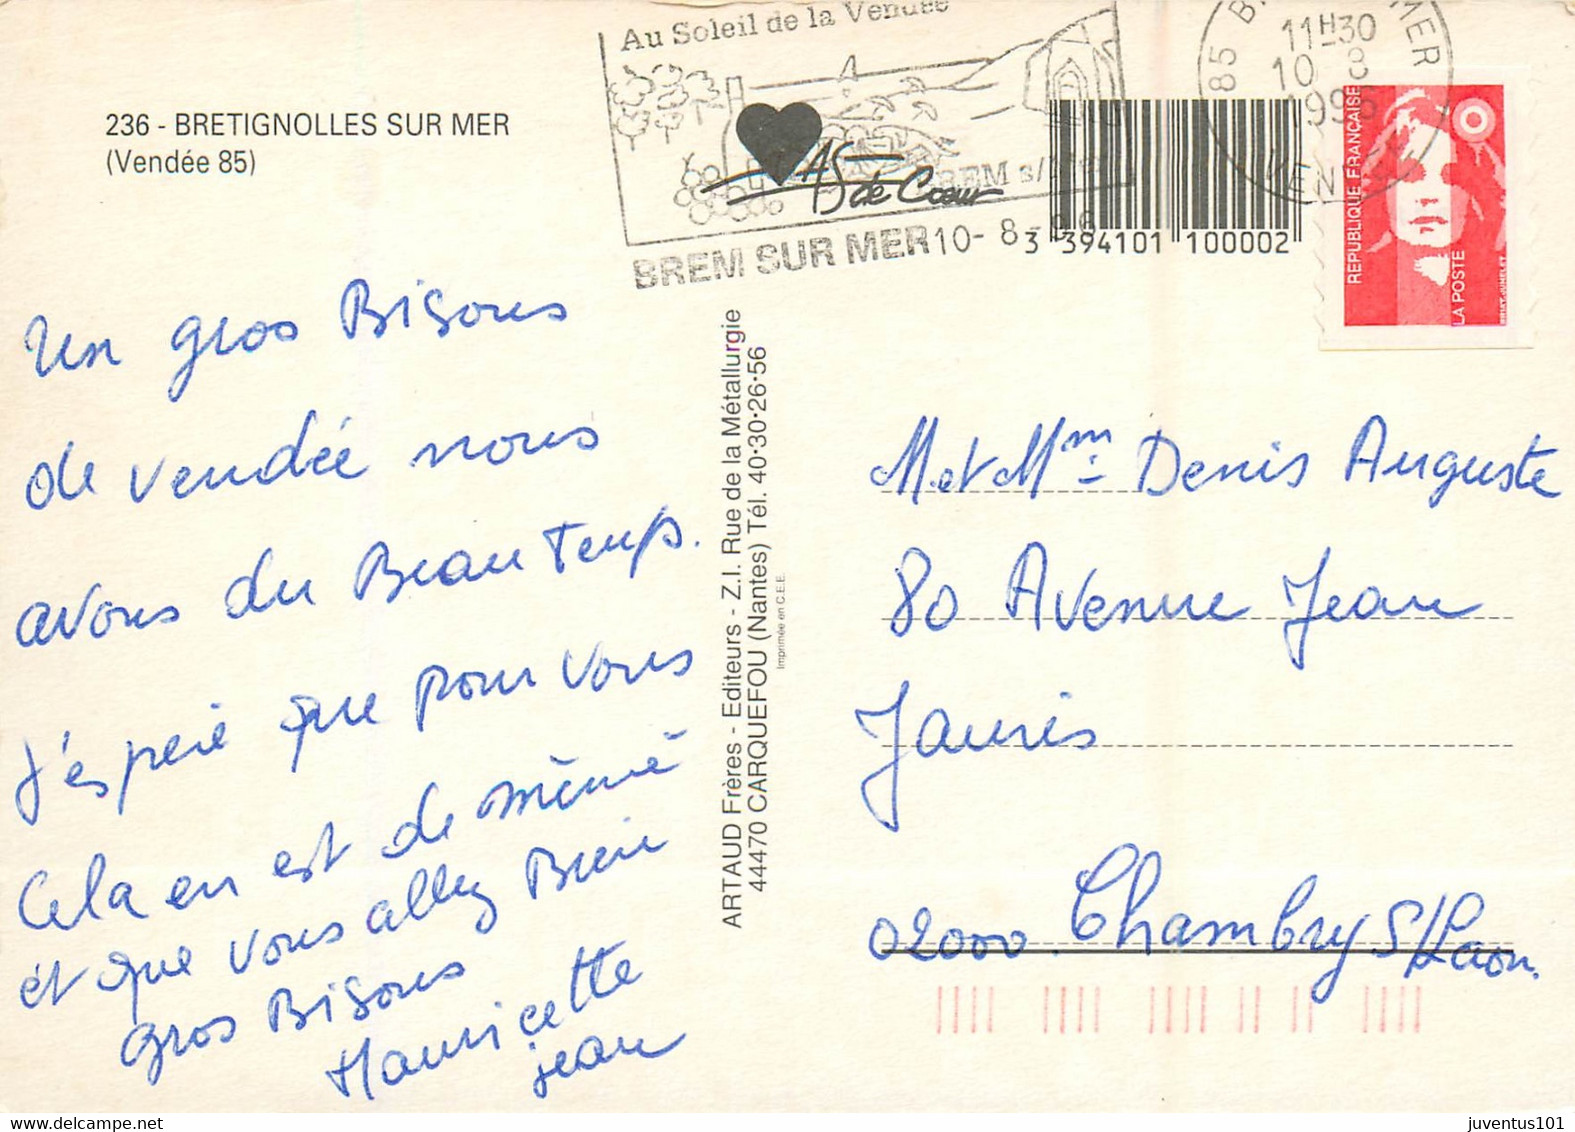 236 - BRETIGNOLLES SUR MER
(Vendée 85)
Au Soleil de la Vendée
AS de Cœur
BREM s/Mer
BREM SUR MER 10- 8 -96
11H30
10 8
85
MER
VENDEE
3 394101 100002
REPUBLIQUE FRANÇAISE
LA POSTE
un gros Bisous
de vendée nous
avons du Beau Temps.
J'espère que pour vous
Cela en est de même
et que vous allez Bien
gros Bisous
Mauricette
jean
ARTAUD Frères - Editeurs - Z.I. Rue de la Métallurgie
44470 CARQUEFOU (Nantes) Tél. 40·30·26·56
Imprimée en C.E.E.
M et Mm Denis Auguste
80 Avenue Jean
Jauris
02000 Chambry S/Laon.
juventus101